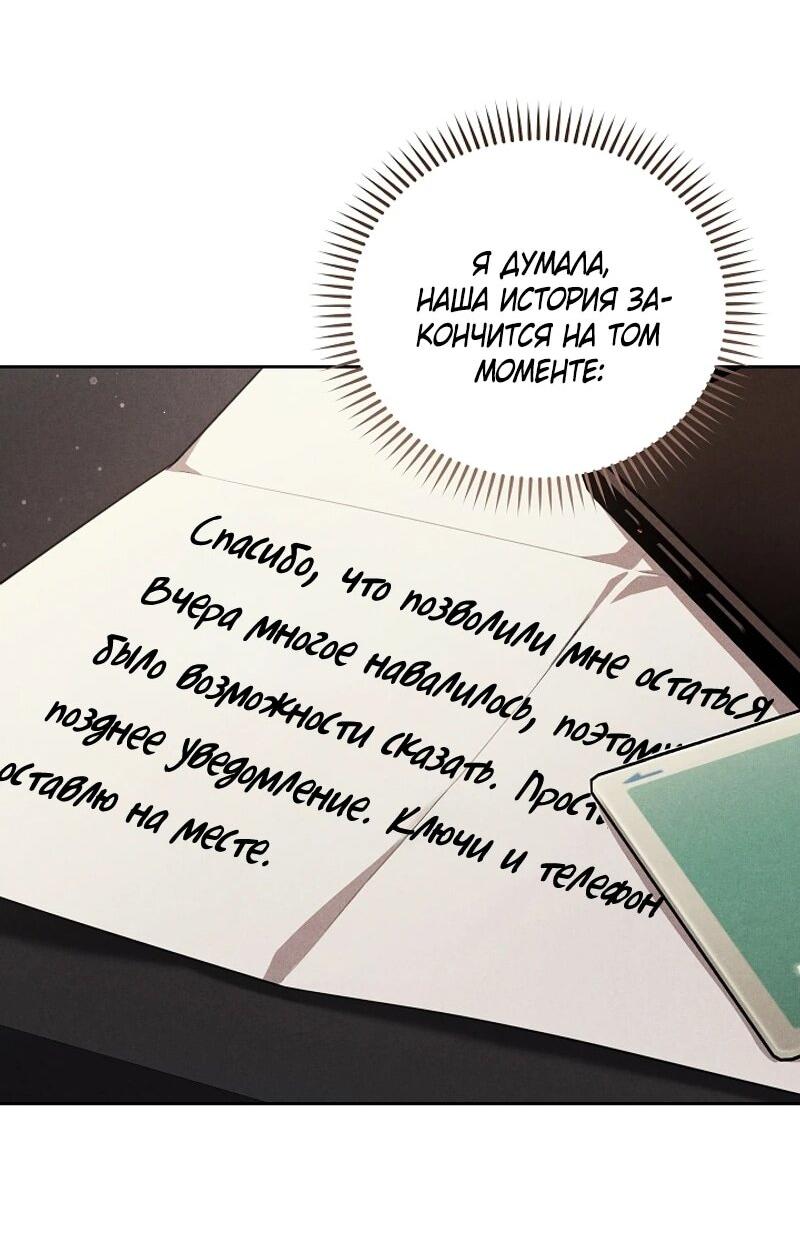 Я ДУМАЛА,
НАША ИСТОРИЯ ЗА-
КОНЧИТСЯ НА ТОМ
МОМЕНТЕ:
Спасибо, что позволили мне остаться
Вчера многое навалилось, поэтому
было возможности сказать. Прост
позднее уведомление. Ключи и телефон
оставлю на месте.